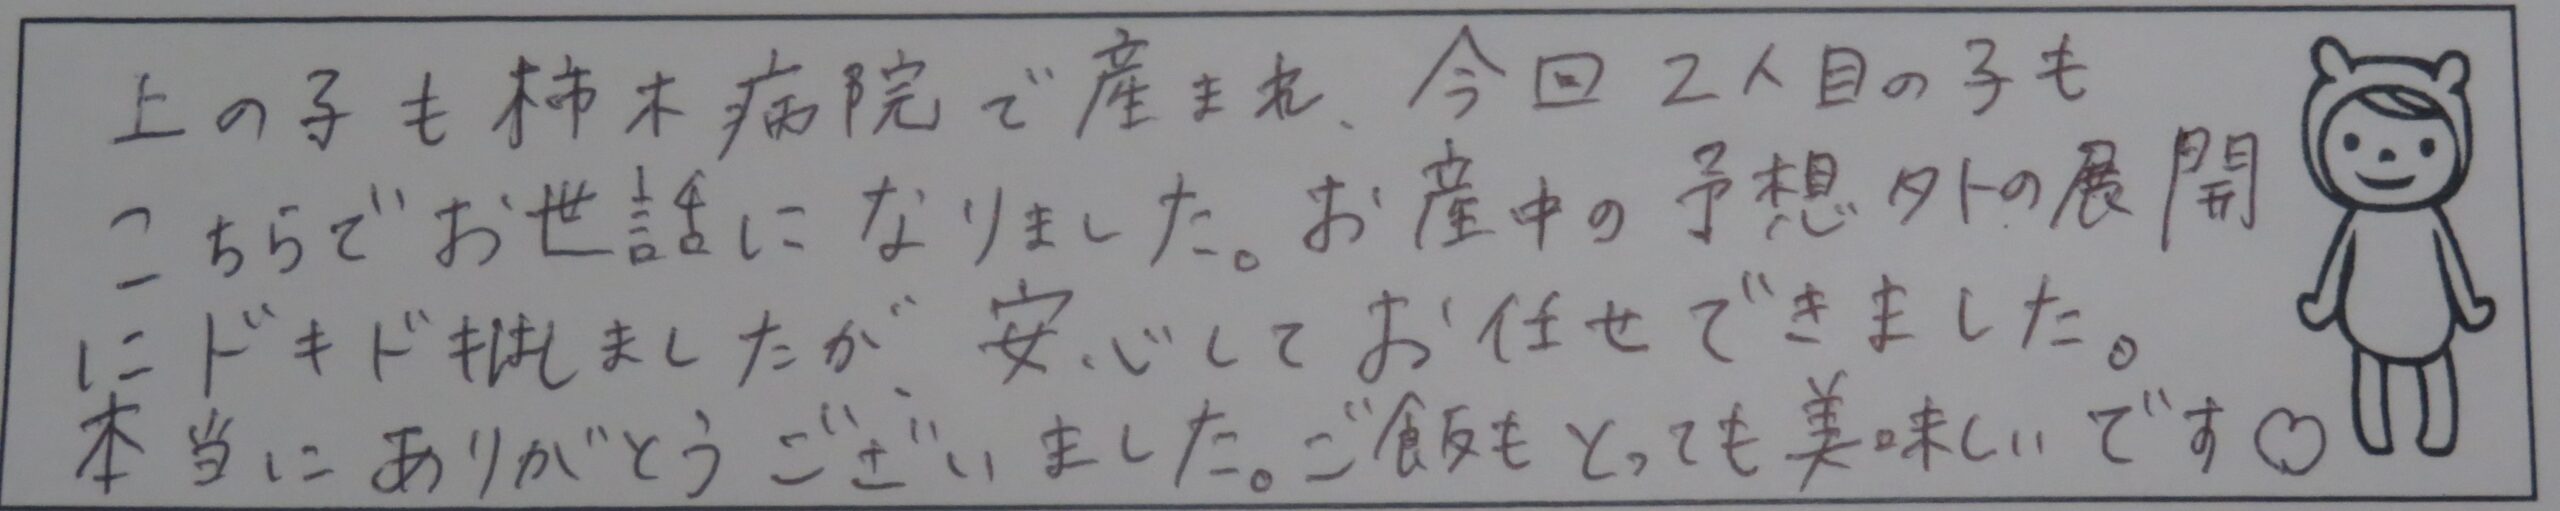 上の子も柿木病院で産まれ、今回2人目の子も
こちらでお世話になりました。お産中の予想外の展開
にドキドキはしましたが、安心してお任せできました。
本当にありがとうございました。ご飯もとっても美味しいです♡